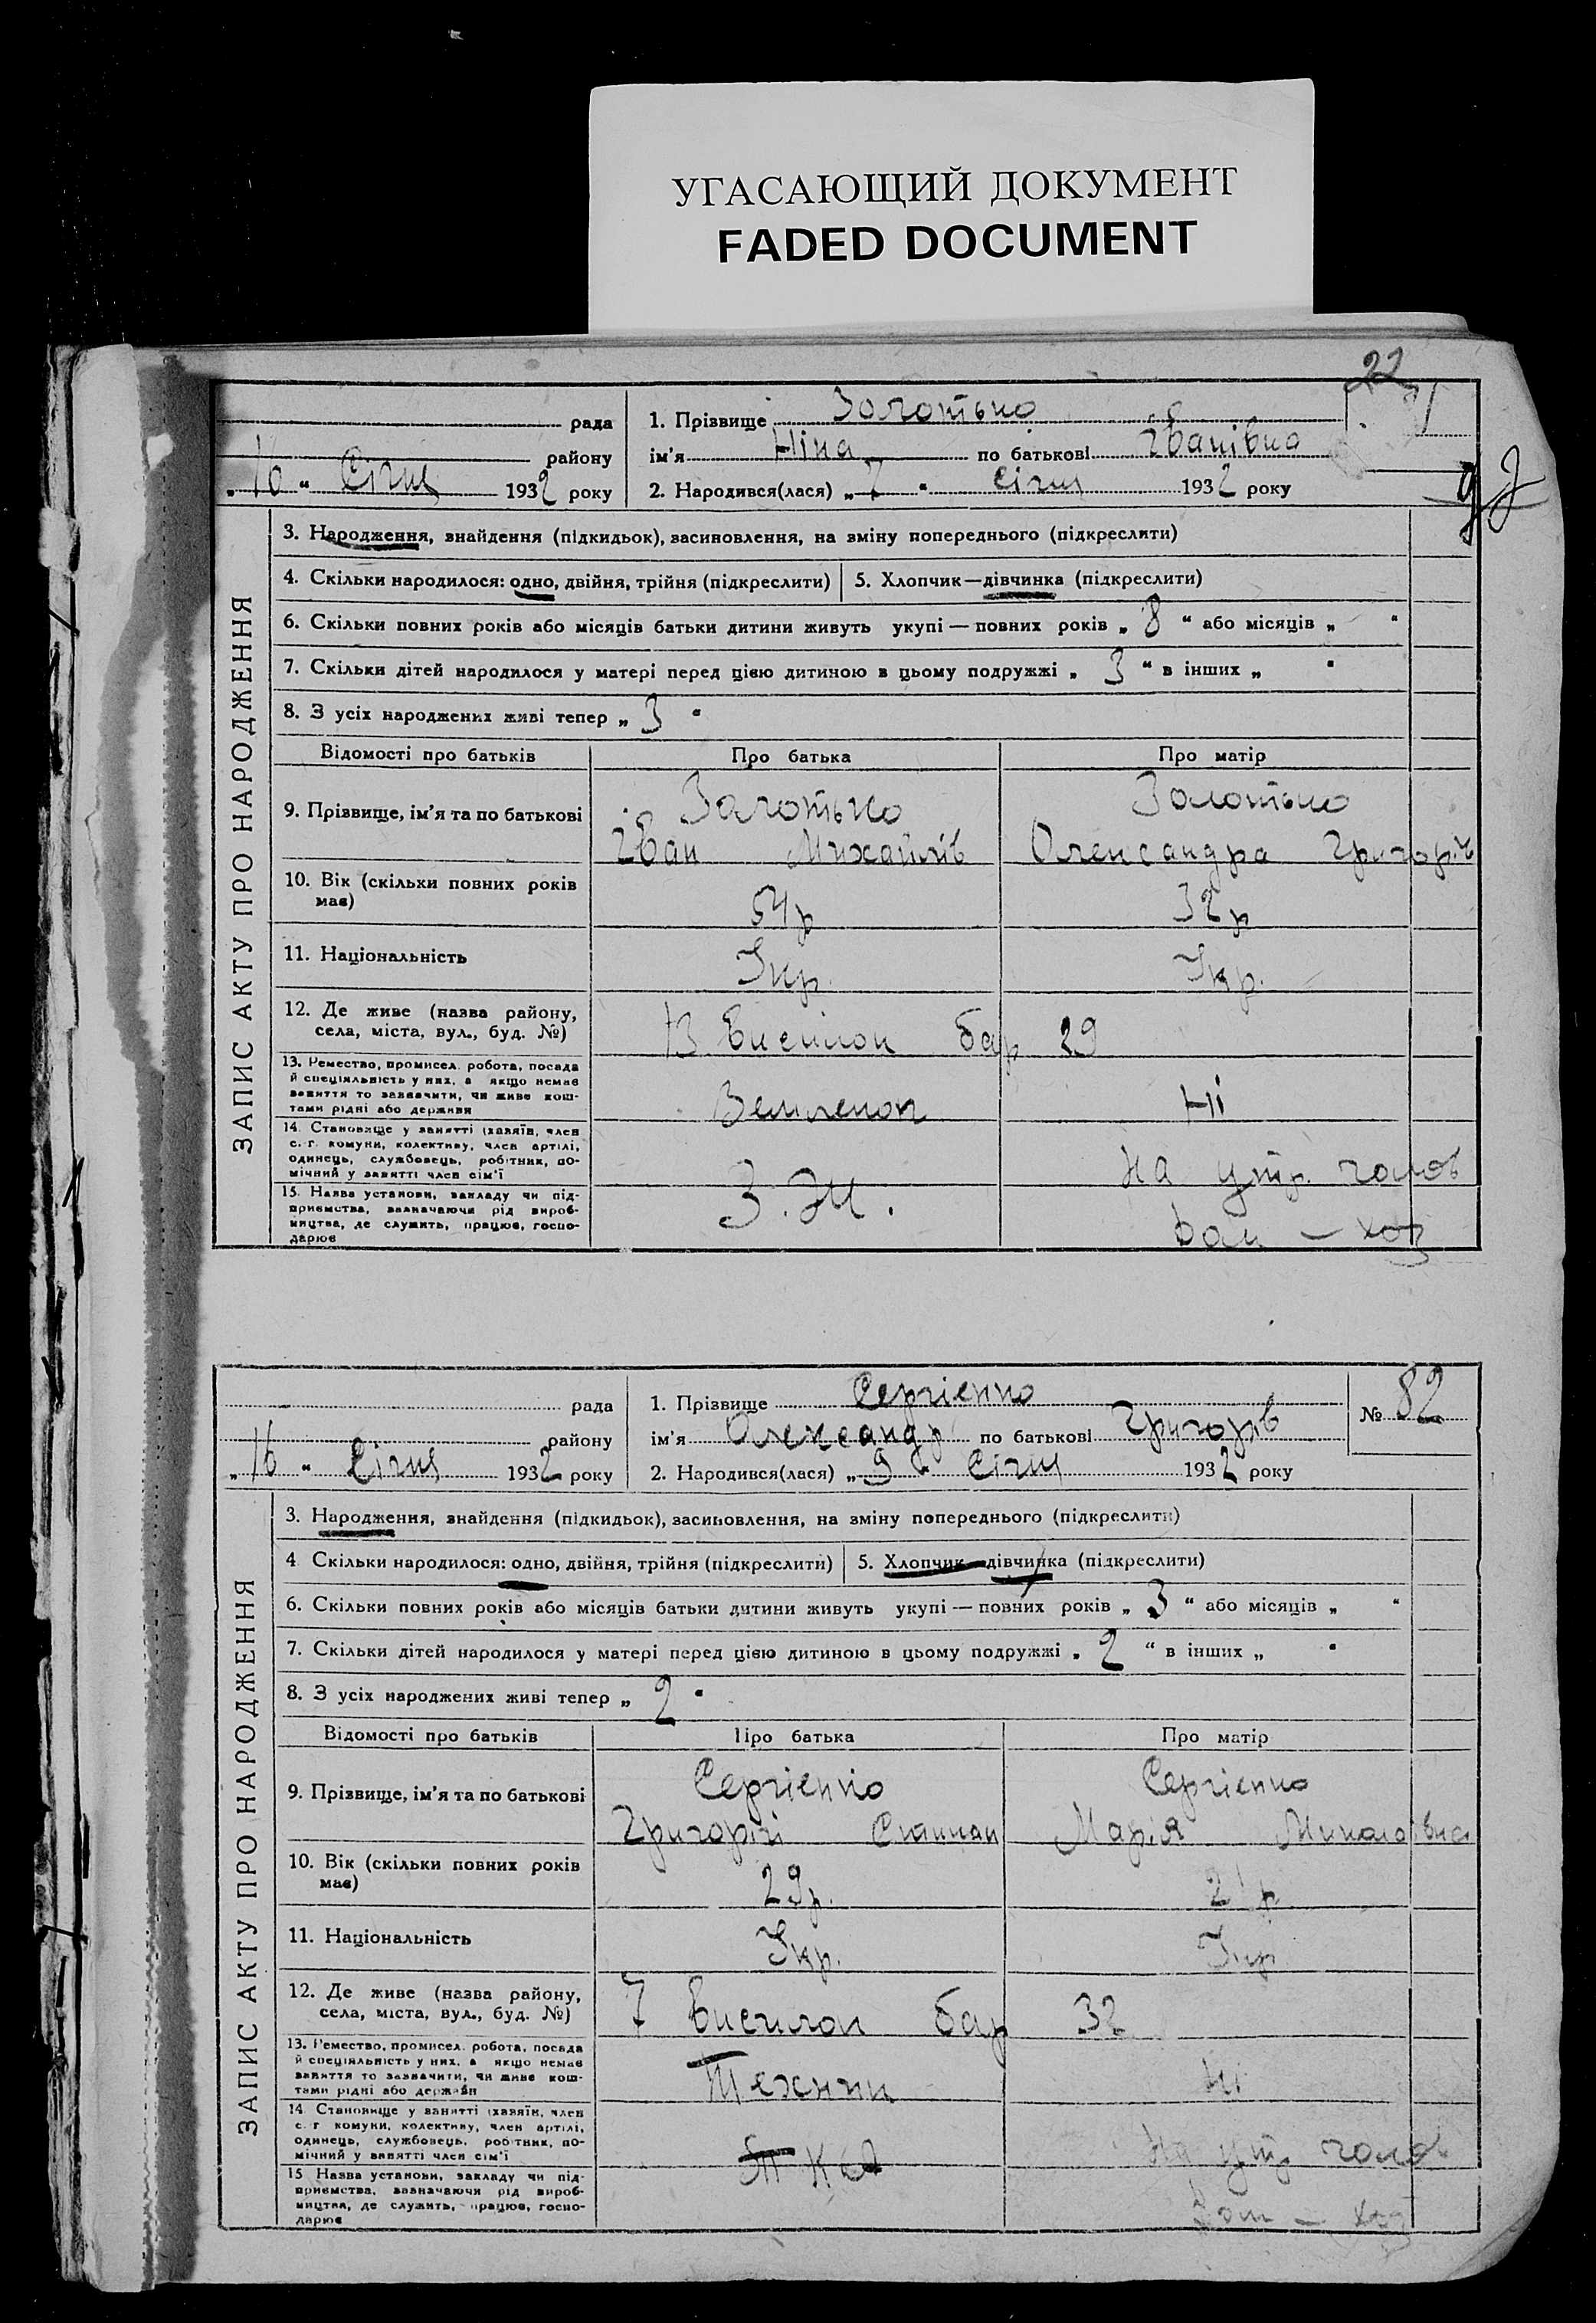 УГАСАЮЩИЙ ДОКУМЕНТ
FADED DOCUMENT
22
рада
1. Прізвище Золотько
району
ім'я Ніна по батькові Іванівна
„16“ Січня 1932 року
2. Народився(лася) „7“ Січня 1932 року
ЗАПИС АКТУ ПРО НАРОДЖЕННЯ
3. Народження, знайдення (підкидьок), засиновлення, на зміну попереднього (підкреслити)
4. Скільки народилося: одно, двійня, трійня (підкреслити) 5. Хлопчик—дівчинка (підкреслити)
6. Скільки повних років або місяців батьки дитини живуть укупі — повних років „8“ або місяців „ “
7. Скільки дітей народилося у матері перед цією дитиною в цьому подружжі „3“ в інших „ “
8. З усіх народжених живі тепер „3“
Відомості про батьків Про батька Про матір
9. Прізвище, ім'я та по батькові
Золотько Золотько
Іван Михайлів Олександра Григорів
10. Вік (скільки повних років має)
54р 32р
11. Національність
Укр. Укр.
12. Де живе (назва району, села, міста, вул., буд. №)
13 Виселок бар 29
13. Ремество, промисел, робота, посада й спеціяльність у них, а якщо немає заняття то зазначити, чи живе коштами рідні або держави
Землекоп Ні
14. Становище у занятті (хазяїн, член с.-г. комуни, колективу, член артілі, одинець, службовець, робітник, помічний у занятті член сім'ї
на утр. голов
15. Назва установи, закладу чи підприємства, зазначаючи рід виробництва, де служить, працює, господарює
дом — хоз
рада
1. Прізвище Сергієнко
№ 82
району
ім'я Олександр по батькові Григорів
„16“ Січня 1932 року
2. Народився(лася) „9“ Січня 1932 року
ЗАПИС АКТУ ПРО НАРОДЖЕННЯ
3. Народження, знайдення (підкидьок), засиновлення, на зміну попереднього (підкреслити)
4 Скільки народилося: одно, двійня, трійня (підкреслити) 5. Хлопчик—дівчинка (підкреслити)
6. Скільки повних років або місяців батьки дитини живуть укупі — повних років „3“ або місяців „ “
7. Скільки дітей народилося у матері перед цією дитиною в цьому подружжі „2“ в інших „ “
8. З усіх народжених живі тепер „2“
Відомості про батьків Про батька Про матір
9. Прізвище, ім'я та по батькові
Сергієнко Сергієнко
Григорій Марія Миколаївна
10. Вік (скільки повних років має)
29р. 21р
11. Національність
Укр. Укр
12. Де живе (назва району, села, міста, вул., буд. №)
7 Виселок бар 32
13. Ремество, промисел, робота, посада й спеціяльність у них, а якщо немає заняття то зазначити, чи живе коштами рідні або держави
Технік Ні
14 Становище у занятті (хазяїн, член с.-г. комуни, колективу, член артілі, одинець, службовець, робітник, помічний у занятті член сім'ї
на утр голов
15 Назва установи, закладу чи підприємства, зазначаючи рід виробництва, де служить, працює, господарює
дом — хоз